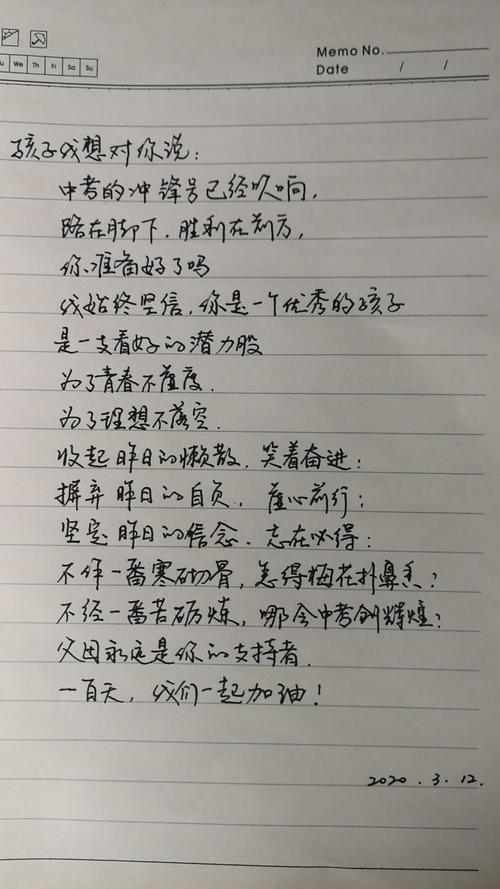 Memo No.
Date / /
u We Th Fr Sa Su
孩子我想对你说：
中考的冲锋号已经吹响，
路在脚下，胜利在前方，
你准备好了吗
我始终坚信，你是一个优秀的孩子
是一支看好的潜力股
为了青春不虚度．
为了理想不落空．
收起昨日的懒散，笑着奋进；
摒弃昨日的自负，虚心前行；
坚定昨日的信念．志在必得；
不作一番寒切骨，怎得梅花扑鼻香？
不经一番苦砺炼，哪会中考创辉煌？
父母永远是你的支持者．
一百天，我们一起加油！
2020.3.12.